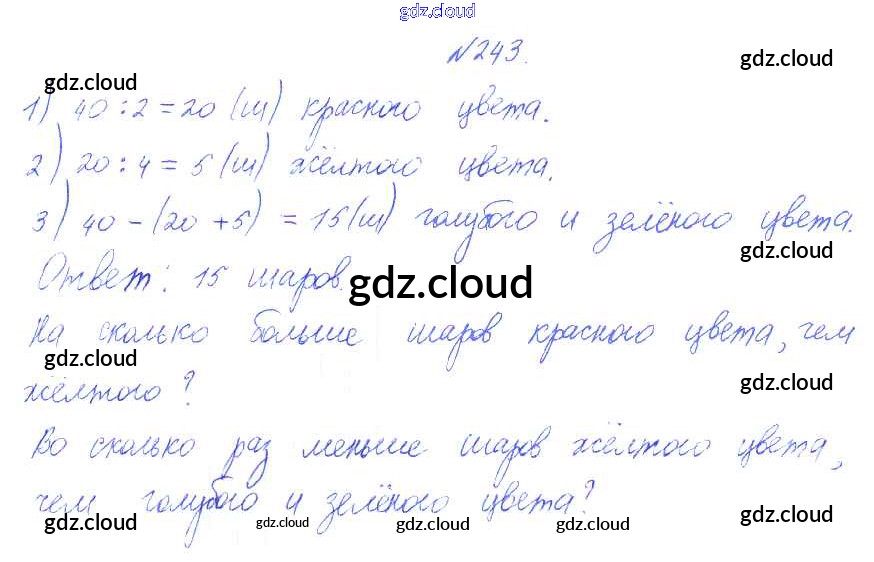 gdz.cloud
№243.
gdz.cloud gdz.cloud
1) 40 : 2 = 20 (ш) красного цвета.
2) 20 : 4 = 5 (ш) жёлтого цвета.
3) 40 - (20 + 5) = 15 (ш) голубого и зелёного цвета.
gdz.cloud gdz.cloud
Ответ: 15 шаров.
gdz.cloud
На сколько больше шаров красного цвета, чем
gdz.cloud gdz.cloud
жёлтого?
Во сколько раз меньше шаров жёлтого цвета,
чем голубого и зелёного цвета?
gdz.cloud gdz.cloud gdz.cloud gdz.cloud gdz.cloud